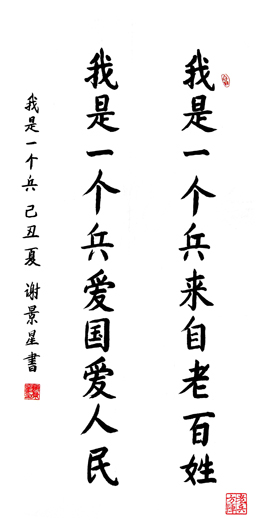 我是一个兵来自老百姓
我是一个兵爱国爱人民
我是一个兵 己丑夏 谢景星書